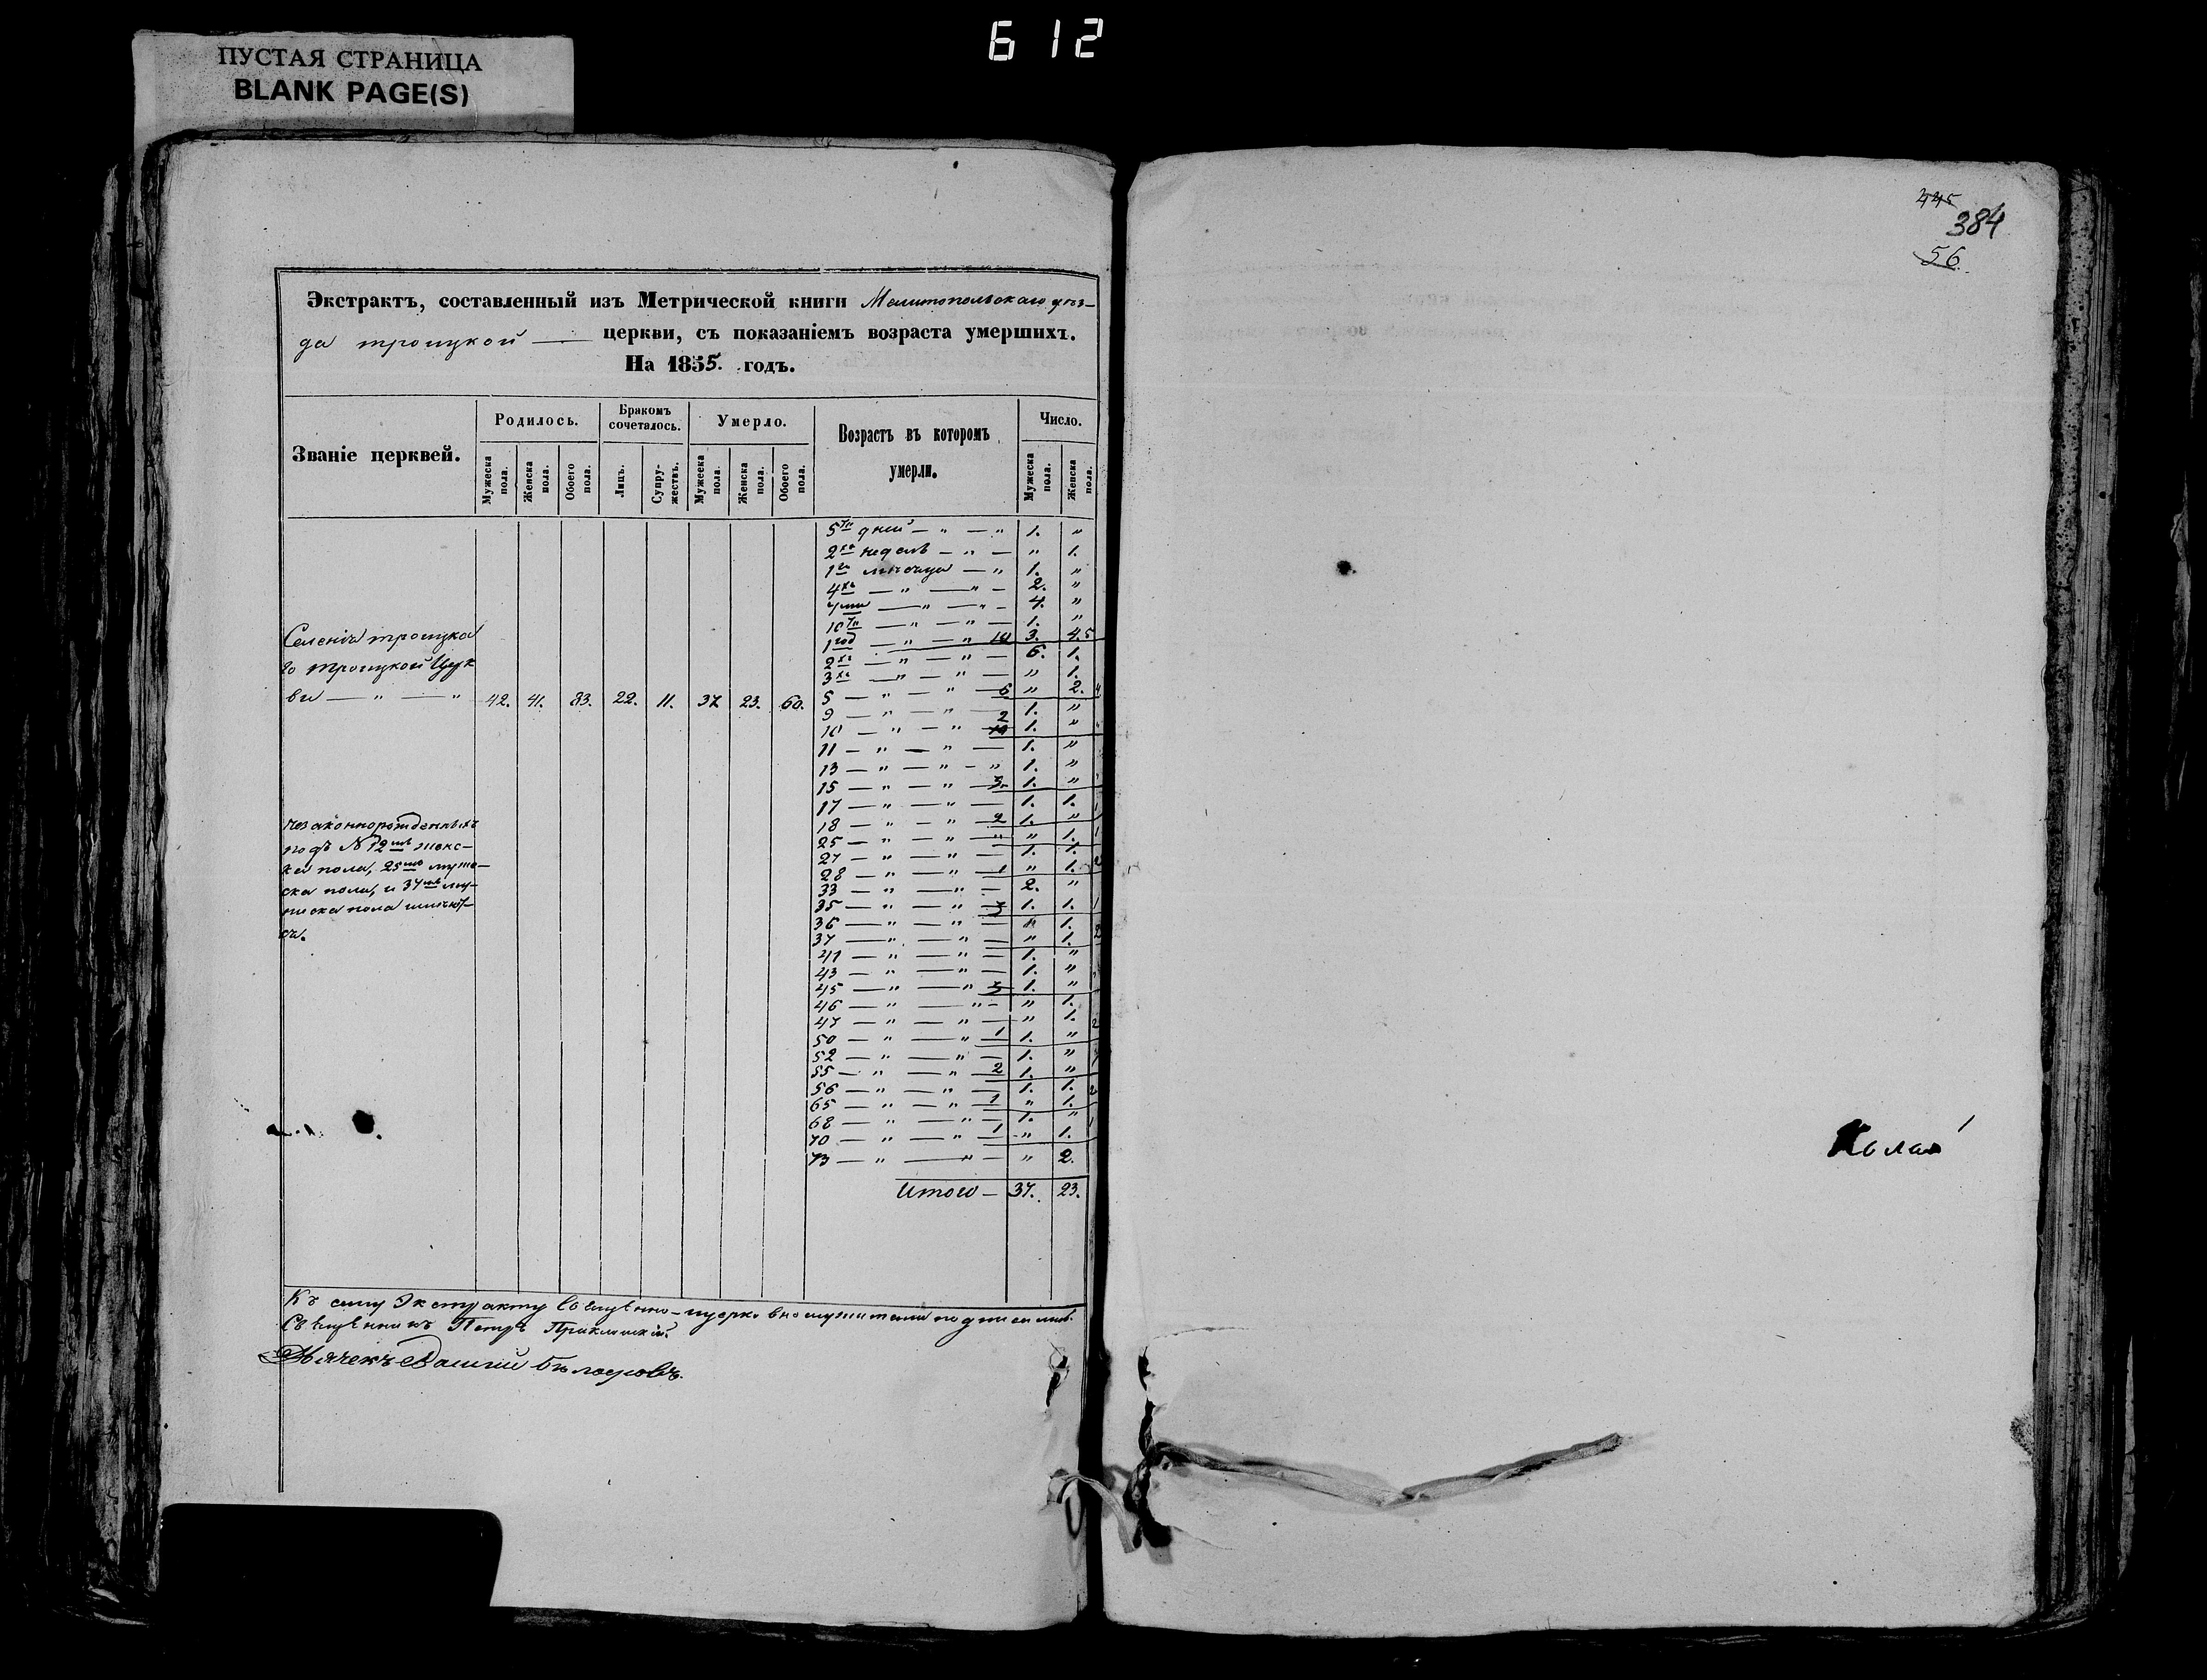 612
ПУСТАЯ СТРАНИЦА
BLANK PAGE(S)
445
384
56.
Экстрактъ, составленный изъ Метрической книги Мелитопольскаго уѣз-
да троицкой — церкви, съ показаніемъ возраста умершихъ.
На 1855. годъ.
Званіе церквей.
Родилось.
Бракомъ сочеталось.
Умерло.
Возрастъ въ которомъ умерли.
Число.
Мужеска пола.
Женска пола.
Обоего пола.
Лицъ.
Супружествъ.
Мужеска пола.
Женска пола.
Обоего пола.
Мужеска пола.
Женска пола.
5ти дней — " — " 1. "
2хъ недель — " — " 1.
1го месяца — " 1. "
4хъ — " — " — 2. "
7ми — " — " — 4. "
10ти — " — " — 1. "
1год — " — " 3. 4. 5
2хъ — " — " — 6. 1.
3хъ — " — " — " 1.
5 — " — " — 6 " 2. 4
9 — " — " — 1. "
10 — " — " 2 1. "
11 — " — " — 1. "
13 — " — " — " 1. "
15 — " — " — 3. 1. "
17 — " — " — 1. 1.
18 — " — " — 2 1. "
25 — " — " — " 1.
27 — " — " — 1. 1.
28 — " — " — 1 " 1.
33 — " — " — 2. "
35 — " — " — 3 1. 1.
36 — " — " — " 1.
37 — " — " — " 1. 2
41 — " — " — 1. "
43 — " — " — 1. "
45 — " — " 3 1. "
46 — " — " — " 1.
47 — " — " — " 1. 2
50 — " — " — 1 1. "
52 — " — " — 1. "
55 — " — " — 2 1. "
56 — " — " — 1. 1. 2
65 — " — " — 1 " 1.
68 — " — " — 1. "
70 — " — " — 1 " 1.
73 — " — " — " 2.
Итого — 37. 23.
Селенія троицка
го троицкой Церк
ви — " — " 42. 41. 83. 22. 11. 37 23. 60.
незаконнорожденныхъ
подъ № 12мъ женс-
ка пола, 25мъ муже-
ска пола, и 37мъ му-
жеска пола имеют-
ся.
Къ сему Экстракту Священно-церковнослужители подписались.
Священникъ Петръ
Дьячекъ